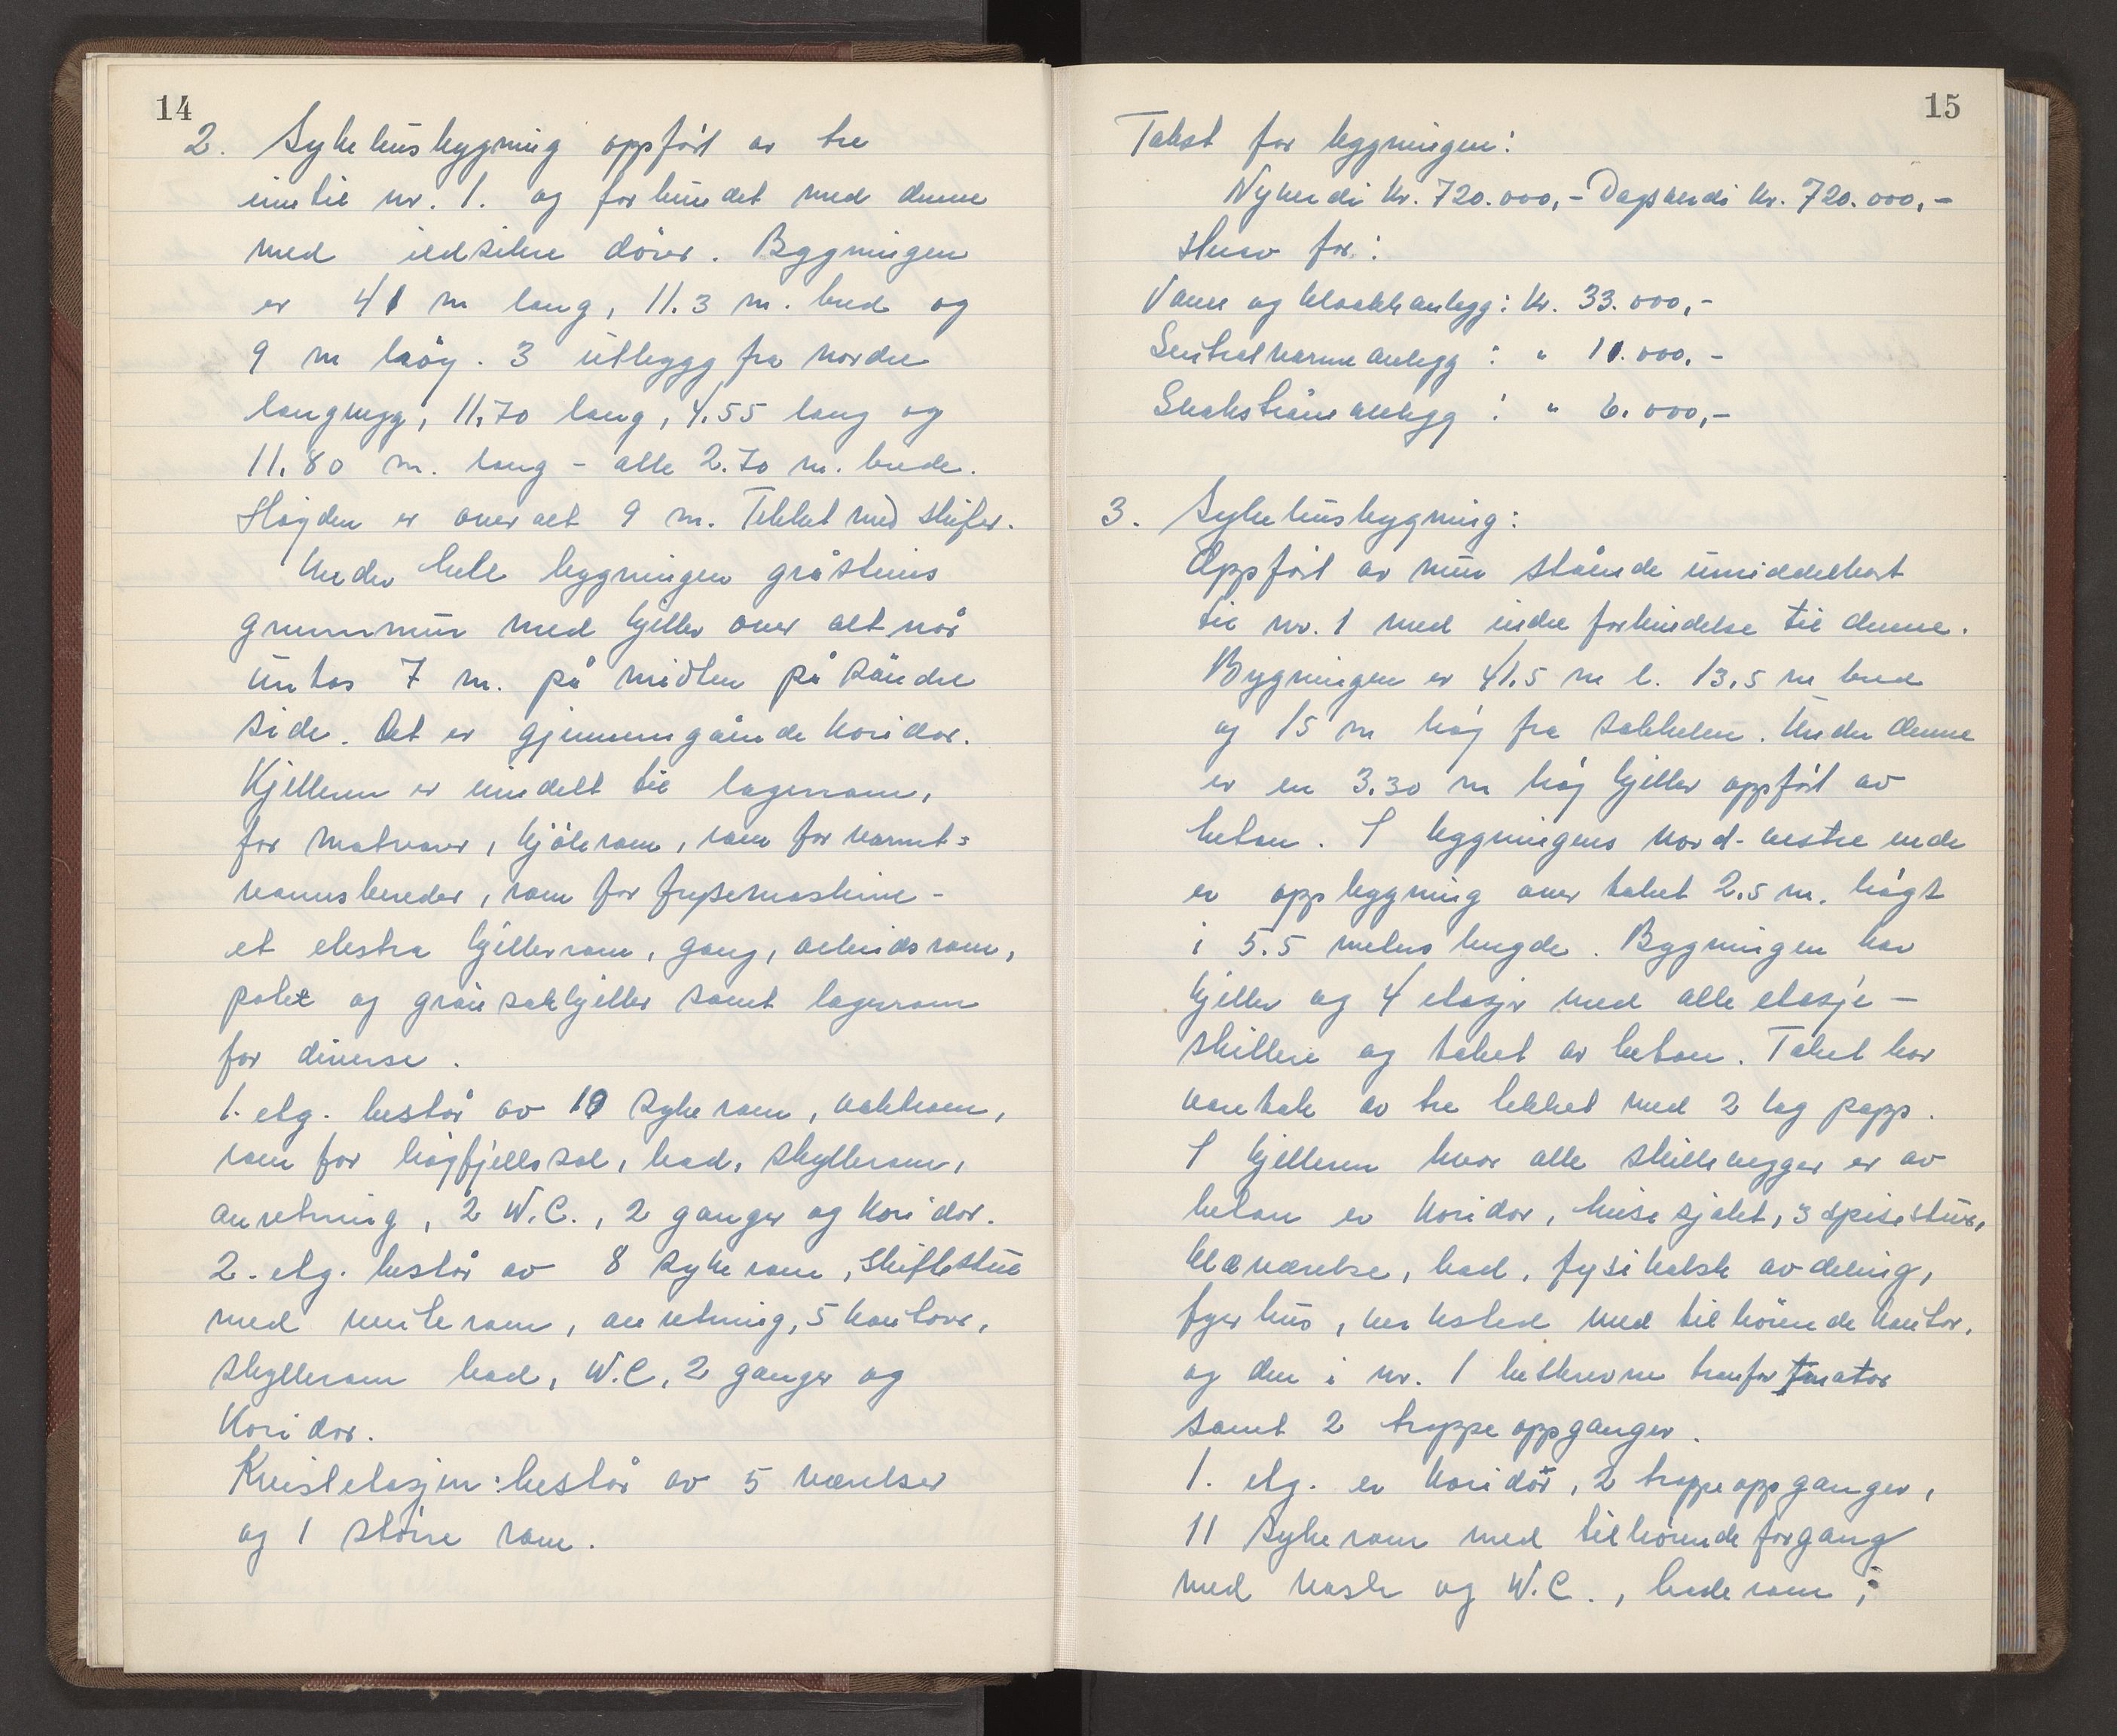 14
2. Sykehusbygning oppført av tre
inntil nr. 1. og forbundet med denne
med ildsikre dører. Bygningen
er 41 m lang, 11.3 m. bred og
9 m høg. 3 utbygg fra nordre
langvegg, 11.70 lang, 4.55 lang og
11.80 m. lang - alle 2.70 m. brede.
Høgden er overalt 9 m. Tekket med skifer.
Under hele bygningen gråsteins
grunnmur med kjeller over alt når
untas 7 m. på midten på søndre
side. Det er gjennomgående koridor.
Kjelleren er inndelt til lagerrom,
for matvarer, kjølerom, rom for varmt=
vannsbereder, rom for frysemaskine -
et ekstra kjellerrom, gang, arbeidsrom,
potet og grønsakkjeller samt lagerrom
for diverse.
1. etg. består av 10 sykerom, vaktrom,
rom for høgfjellssol, bad, skyllerom,
anretning, 2 W.C., 2 ganger og koridor.
2. etg. består av 8 sykerom, skiftestue
med venterom, anretning, 5 kontorer,
skyllerom bad, W.C, 2 ganger og
koridor.
Kvistetasjen: består av 5 værelser
og 1 større rom.
15
Takst for bygningen:
Nyverdi kr. 720.000,- Dagsverdi kr. 720.000,-
Herav for:
Vann og kloakkanlegg: kr. 33.000,-
Sentralvarmeanlegg : " 11.000,-
Svakstrømanlegg : " 6.000,-
3. Sykehusbygning:
Oppført av mur stående umiddelbart
til nr. 1 med indre forbindelse til denne.
Bygningen er 41.5 m l. 13.5 m bred
og 15 m høg fra sokkelen. Under denne
er en 3.30 m høg kjeller oppført av
beton. I bygningens nord-vestre ende
er oppbygning over taket 2.5 m. høgt
i 5.5 meters lengde. Bygningen har
kjeller og 4 etasjer med alle etasje-
skillere og taket av beton. Taket har
vantak av tre tekket med 2 lag papp.
I kjelleren hvor alle skillevegger er av
betong er koridor, heisesjakt, 3 spisestuer,
kleværelse, bad, fysikalsk avdeling,
fyrhus, verksted med tilhørende kontor,
og den i nr. 1 beskrevne tranformator
samt 2 trappeoppganger.
1. etg. er koridor, 2 trappeoppganger,
11 sykerom med tilhørende forgang
med vask og W.C., baderom,